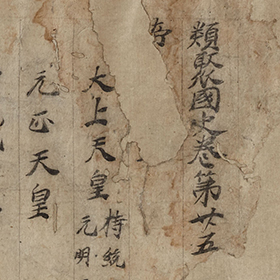 類聚國史卷第廿五
太上天皇 持統
元明
元正天皇